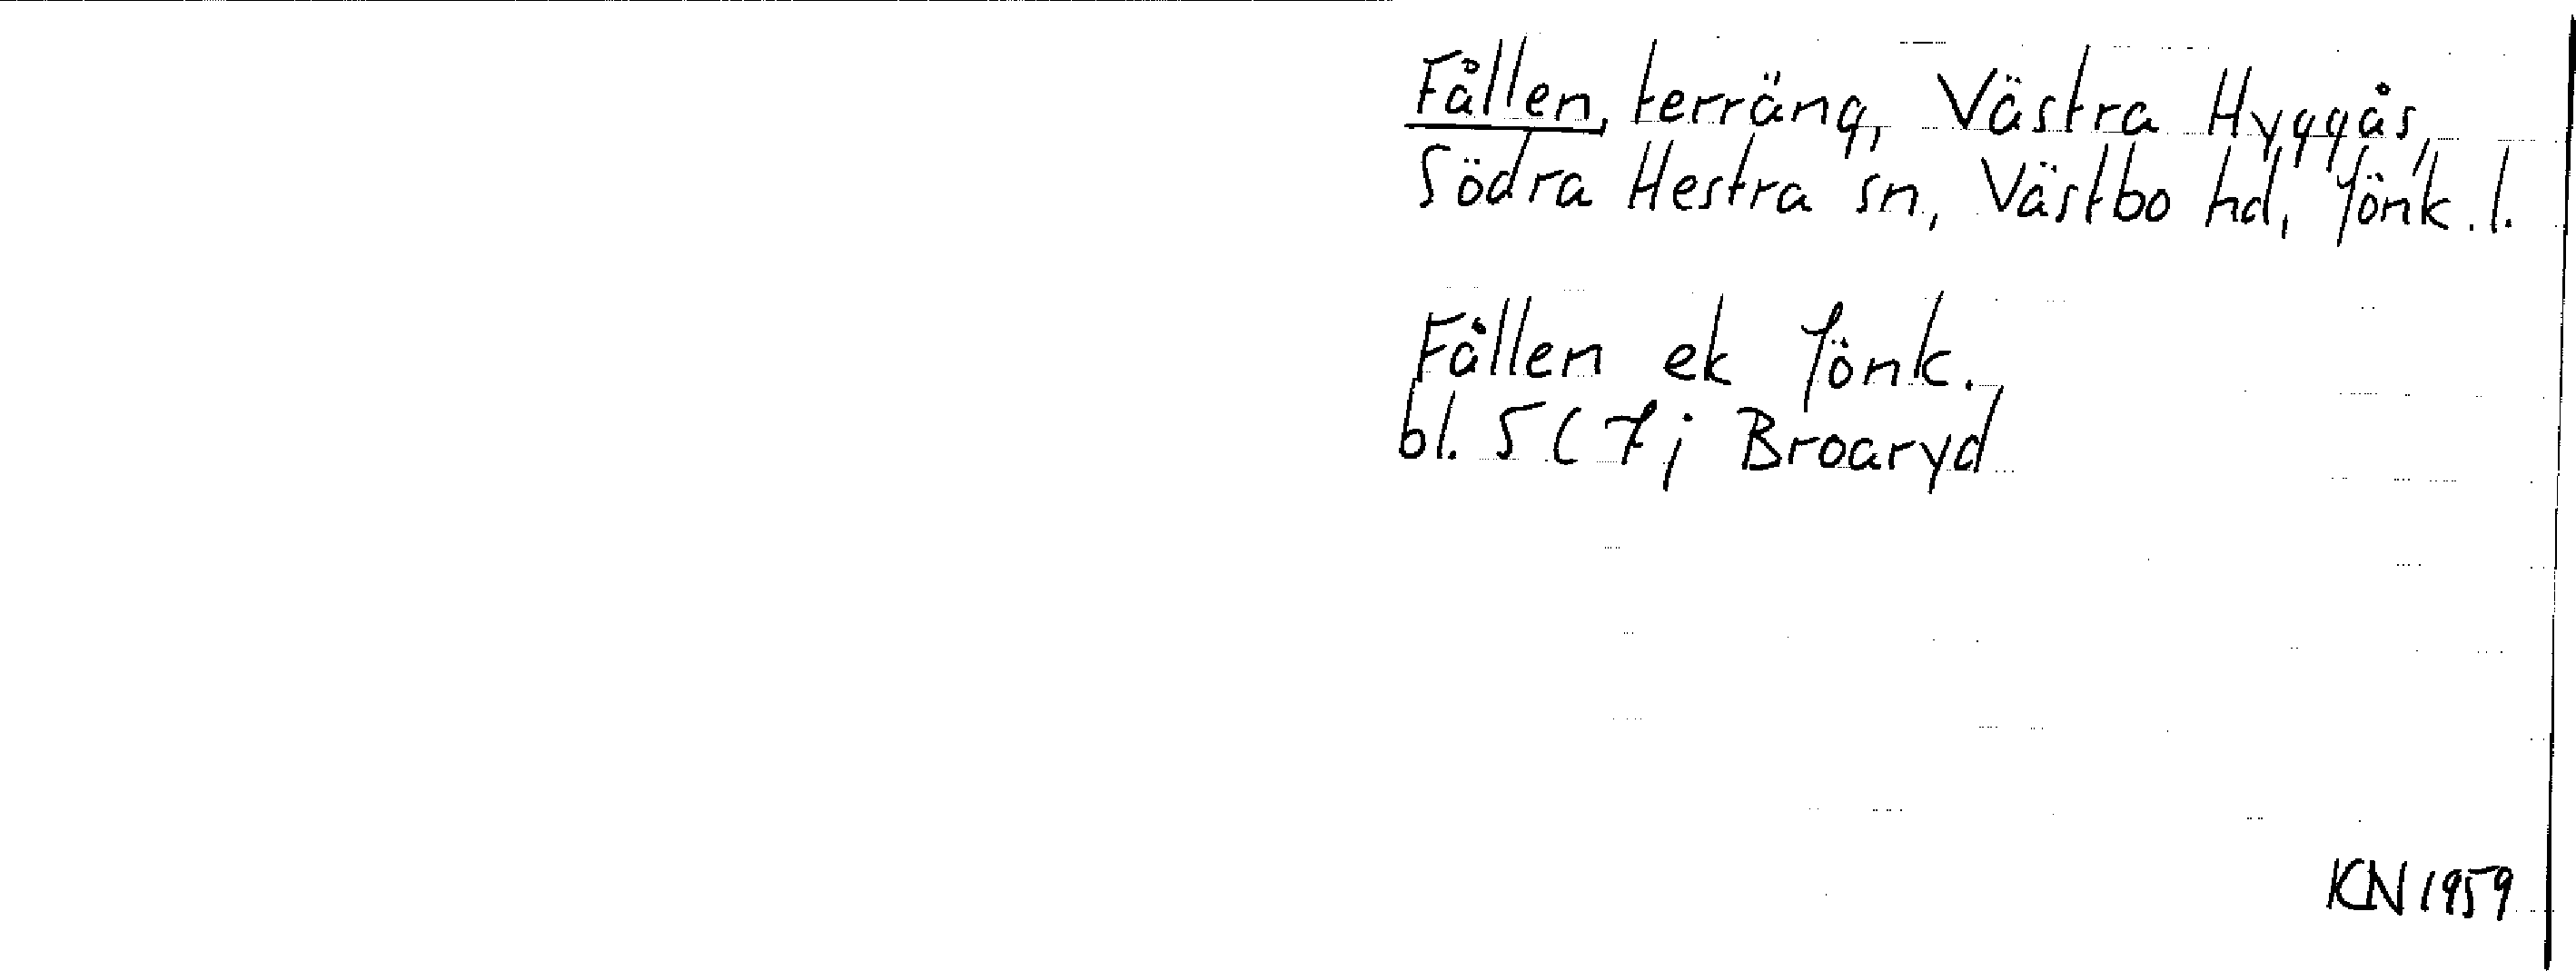 Fållen, terräng, Västra Hyggås,
Södra Hestra sn, Västbo hd, Jönk. l.
Fållen ek Jönk.
bl. 5C 7j Broaryd
KN 1959